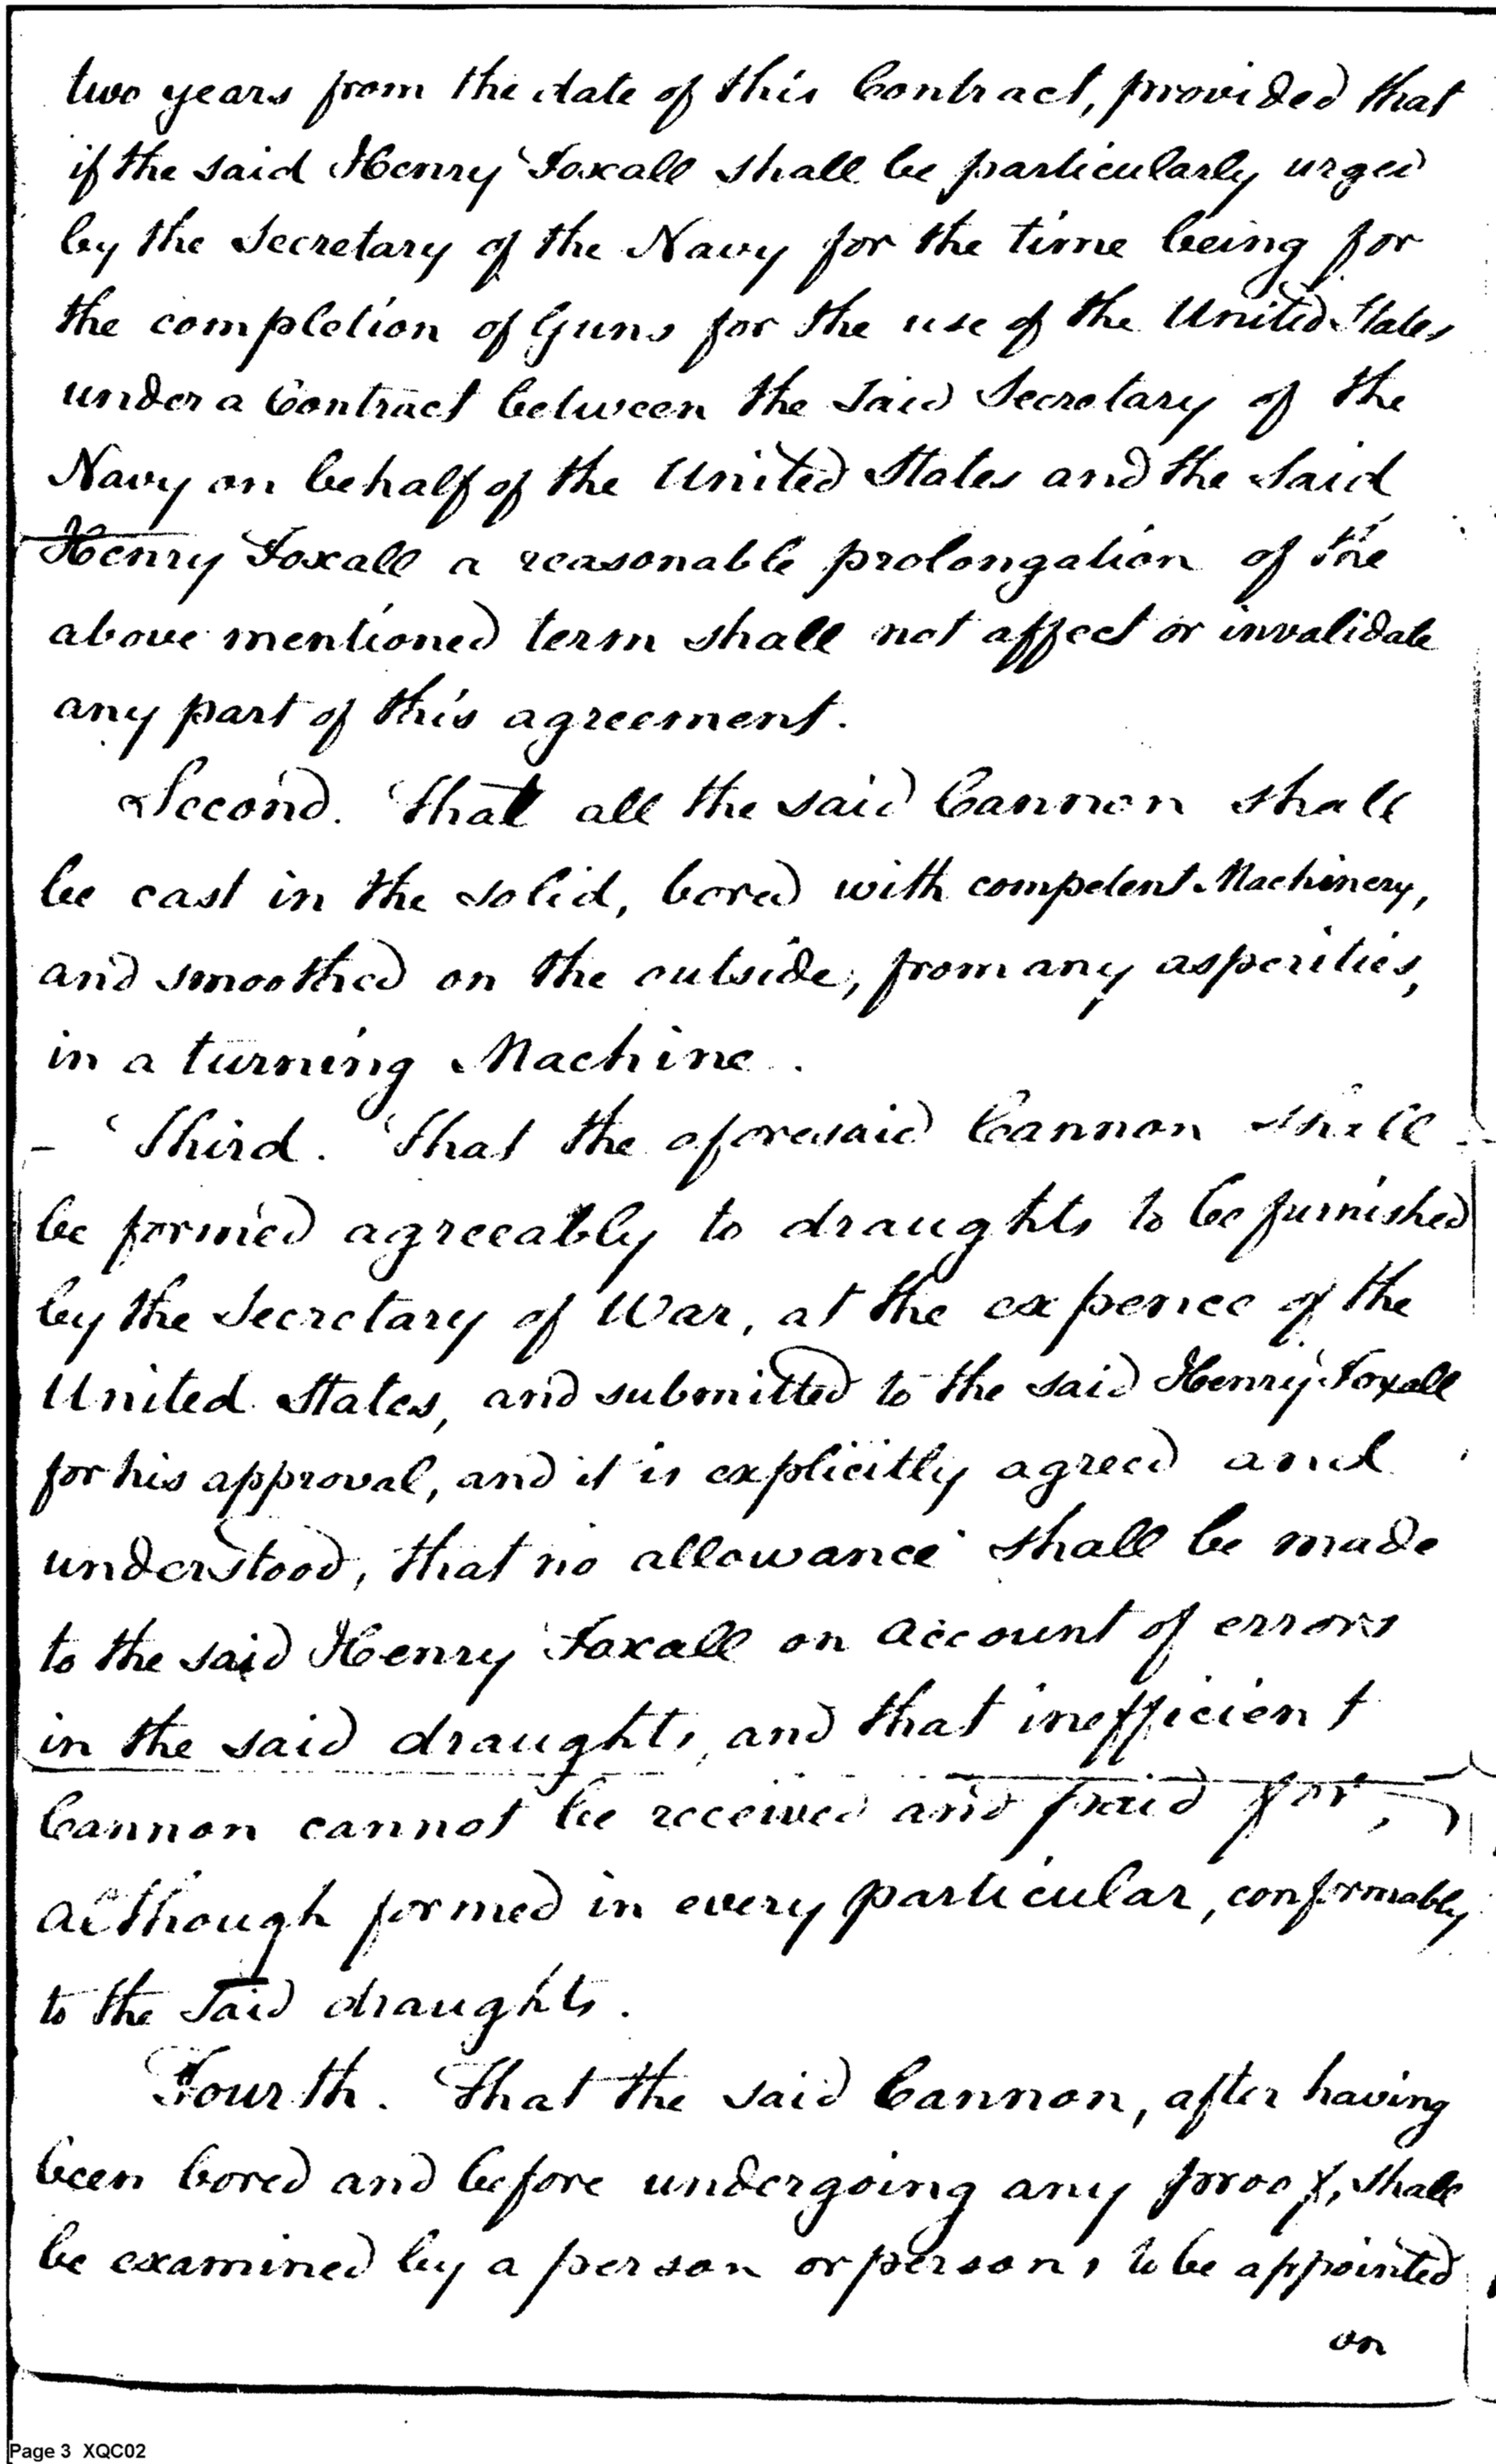 two years from the date of this Contract, provided that
if the said Henry Foxall shall be particularly urged
by the Secretary of the Navy for the time being for
the completion of Guns for the use of the United States
under a Contract between the said Secretary of the
Navy on behalf of the United States and the said
Henry Foxall a reasonable prolongation of the
above mentioned term shall not affect or invalidate
any part of this agreement.
Second. That all the said Cannon shall
be cast in the solid, bored with competent Machinery,
and smoothed on the outside, from any asperities,
in a turning Machine.
– Third. That the aforesaid Cannon shall
be formed agreeably to draughts to be furnished
by the Secretary of War, at the expence of the
United States, and submitted to the said Henry Foxall
for his approval, and it is explicitly agreed and
understood, that no allowance shall be made
to the said Henry Foxall on account of errors
in the said draughts, and that inefficient
Cannon cannot be received and paid for,
although formed in every particular, conformably
to the said draughts.
Fourth. That the said Cannon, after having
been bored and before undergoing any proof, shall
be examined by a person or persons to be appointed
on
Page 3 XQC02